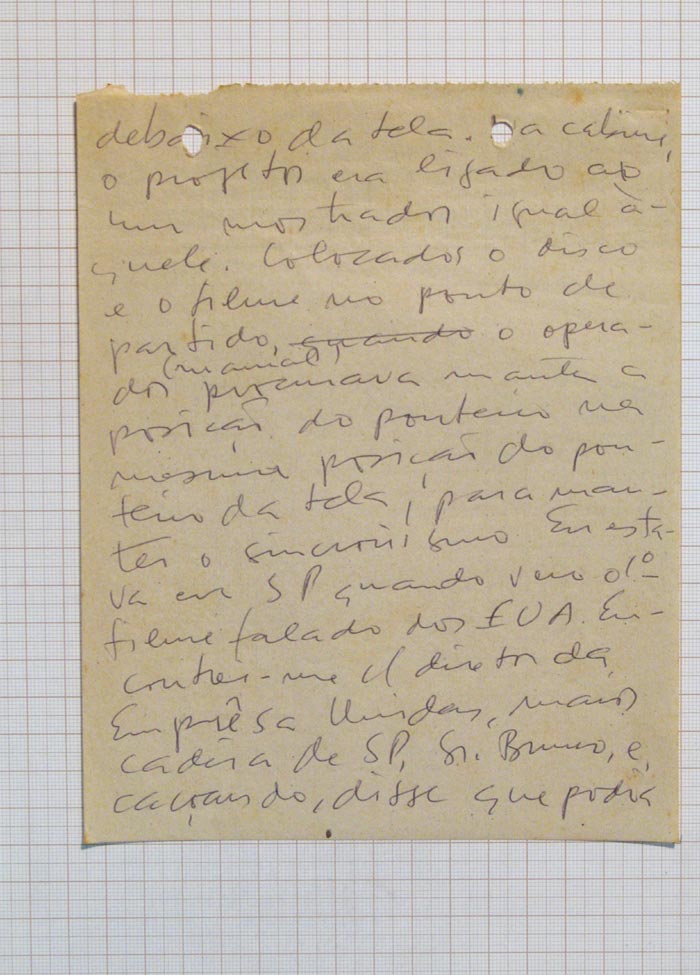 debaixo da tela. Na cabine,
o projetor era ligado ao
um mostrador igual à-
quele. Colocados o disco
e o filme no ponto de
partido, quando o opera-
(manual)
dor procurava manter a
posição do ponteiro na
mesma posição do pon-
teiro da tela, para man-
ter o sincronismo. Eu esta-
va em SP quando veio o 1º
filme falado dos EUA. En-
contrei-me c/ diretor da
Emprêsa Unidas, maior
cadeia de SP, Sr. Bruno, e,
caçoando, disse que podia